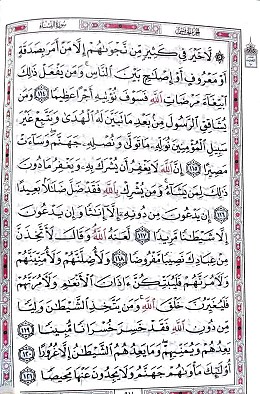 سورة النساء
الجزء الخامس
لا خير في كثير من نجوىهم إلا من أمر بصدقة
أو معروف أو إصلح بين الناس ومن يفعل ذلك
ابتغاء مرضات الله فسوف نؤتيه أجرا عظيما ١١٤ ومن
يشاقق الرسول من بعد ما تبين له الهدى ويتبع غير
سبيل المؤمنين نوله ما تولى ونصله جهنم وساءت
مصيرا ١١٥ إن الله لا يغفر أن يشرك به ويغفر ما دون
ذلك لمن يشاء ومن يشرك بالله فقد ضل ضللا بعيدا
١١٦ إن يدعون من دونه إلا إنثا وإن يدعون
إلا شيطنا مريدا ١١٧ لعنه الله وقال لأتخذن
من عبادك نصيبا مفروضا ١١٨ ولأضلنهم ولأمنينهم
ولأمرنهم فليبتكن ءاذان الأنعم ولأمرنهم
فليغيرن خلق الله ومن يتخذ الشيطن وليا
من دون الله فقد خسر خسرانا مبينا ١١٩
يعدهم ويمنيهم وما يعدهم الشيطن إلا غرورا ١٢٠
أولئك مأوىهم جهنم ولا يجدون عنها محيصا ١٢١